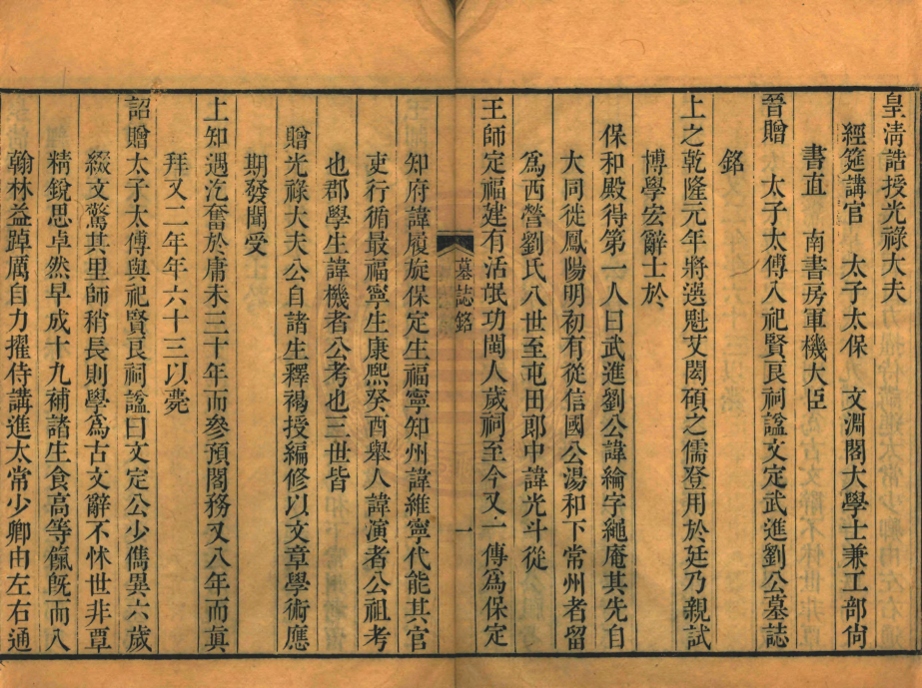 皇淸誥授光祿大夫
經筵講官　太子太保　文淵閣大學士兼工部尙
書直　南書房軍機大臣
晉贈　太子太傅入祀賢良祠諡文定武進劉公墓誌
銘
上之乾隆元年將選魁艾閎碩之儒登用於廷乃親試
博學宏辭士於
保和殿得第一人曰武進劉公諱綸字繩庵其先自
大同徙鳳陽明初有從信國公湯和下常州者留
爲西營劉氏八世至屯田郞中諱光斗從
王師定福建有活氓功閩人歲祠至今又一傳爲保定
墓誌銘
一
知府諱履旋保定生福寧知州諱維寧代能其官
吏行循最福寧生康熙癸酉舉人諱演者公祖考
也郡學生諱機者公考也三世皆
贈光祿大夫公自諸生釋褐授編修以文章學術應
期發聞受
上知遇汔奮於庸未三十年而參預閣務又八年而眞
拜又二年年六十三以薨
詔贈太子太傅與祀賢良祠諡曰文定公少儁異六歲
綴文驚其里師稍長則學爲古文辭不怵世非覃
精銳思卓然早成十九補諸生食高等餼旣而入
翰林益踔厲自力擢侍講進太常少卿由左右通